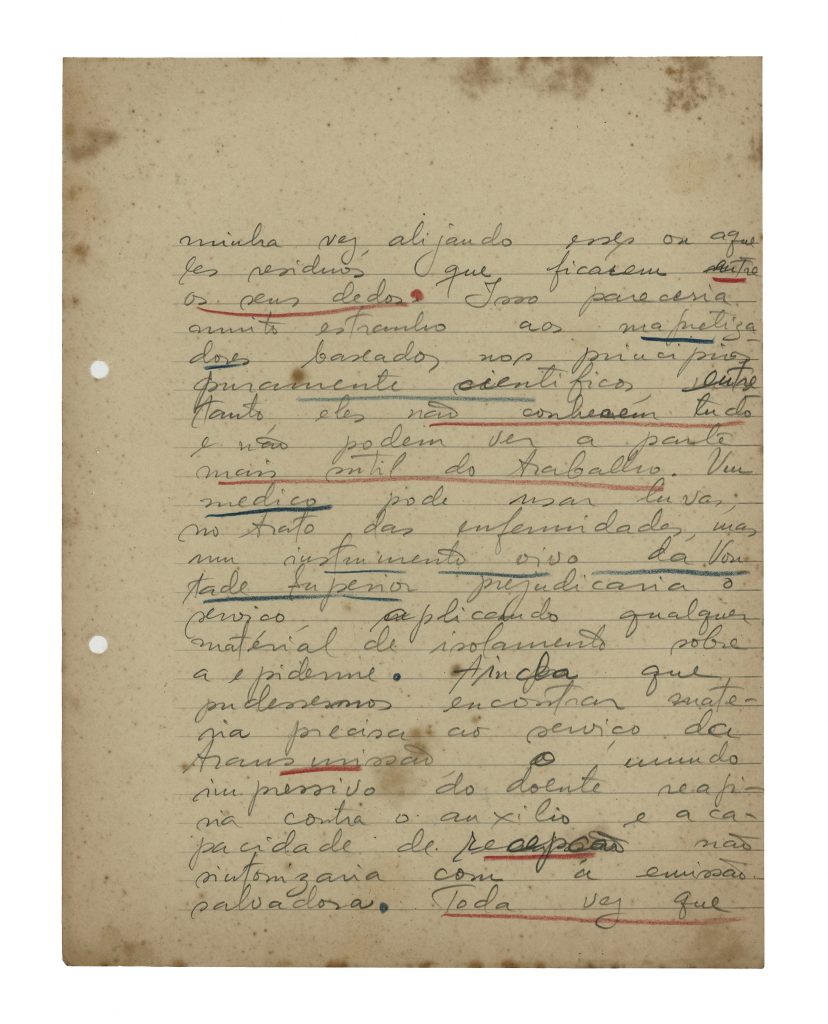 minha vez, alijando esses ou aque
les residuos que ficarem entre
os seus dedos. Isso pareceria
muito estranho aos magnetiza-
dores baseados nos principios
puramente cientificos, entre
tanto eles não conhecem tudo
e não podem ver a parte
mais sutil do trabalho. Um
medico pode usar luvas,
no trato das enfermidades, mas
um instrumento vivo da Von
tade Superior prejudicaria o
serviço aplicando qualquer
material de isolamento sobre
a epiderme. Ainda que
pudessemos encontrar mate-
ria precisa ao serviço da
transmissão o mundo
impressivo do doente reagi-
ria contra o auxilio e a ca-
pacidade de recepção não
sintonizaria com a emissão
salvadora. Toda vez que